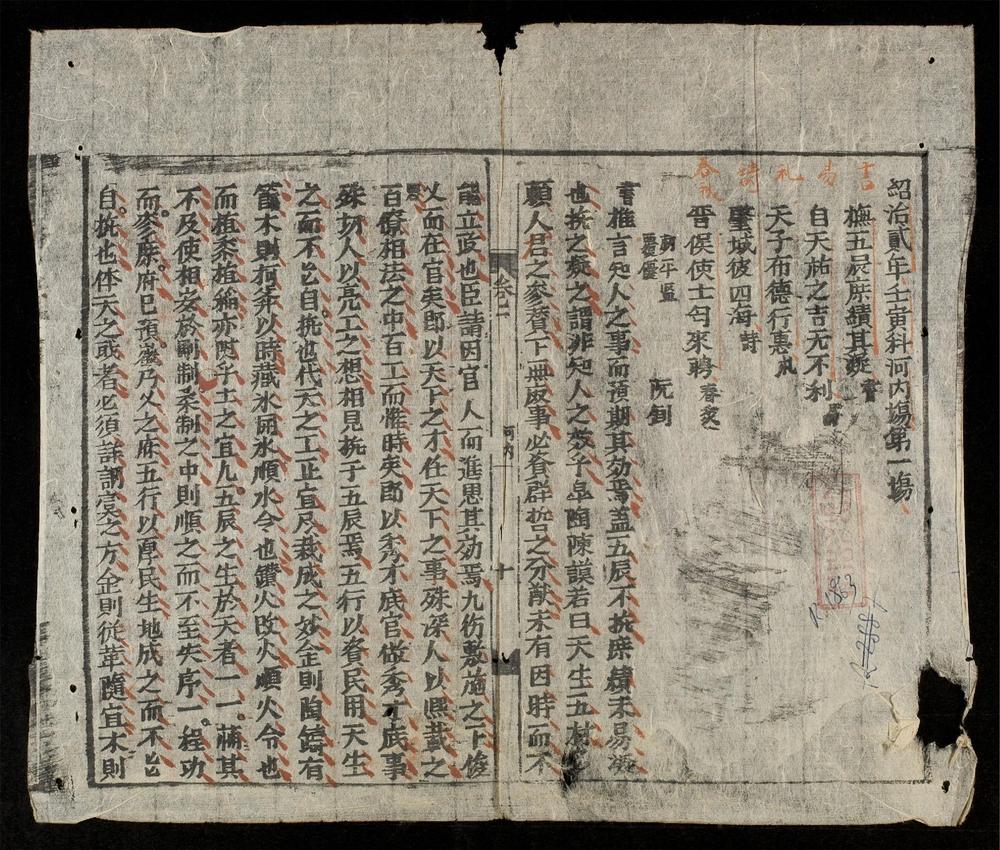 紹治貳年壬寅科河内場第一場
撫五辰庶績其凝 書
自天祐之吉无不利 易
天子布德行惠 礼
肇域彼四海 詩
晋侯使士匄來聘 春秋
書 易 礼 詩 春秋
阮釗
書推言知人之事而預期其効焉蓋五辰不撫庶績未易凝
也撫之凝之謂非知人之效乎皐陶陳謨若曰天生五材
願人君之參贊下無廢事必資群哲之分猷未有因時而不
能立政也臣請因官人而進思其効焉九德敷施之下俊
乂而在官矣卽以天下之才任天下之事殊深人以熙載之
百僚相法之中百工而惟時矣卽以秀才底官做秀才底事
殊切人以亮工之想相見撫于五辰焉五行以資民用天生
之而不能自撫也代天之工止宜尽裁成之妙金則陶鑄有
木則有弆以時藏氷雨水順水令也鑽火改火順火令也
而植黍植稲亦随乎土之宜凡五辰之生於天者一一補其
不及使相安於剛制柔制之中則順之而不至失序一程功
而參庶府已預慶乃乂之府五行以厚民生地成之而不能
自撫也体天之或者必須詳調變之方金則従革隨宜木則
卷二
河内
十
N. 1863